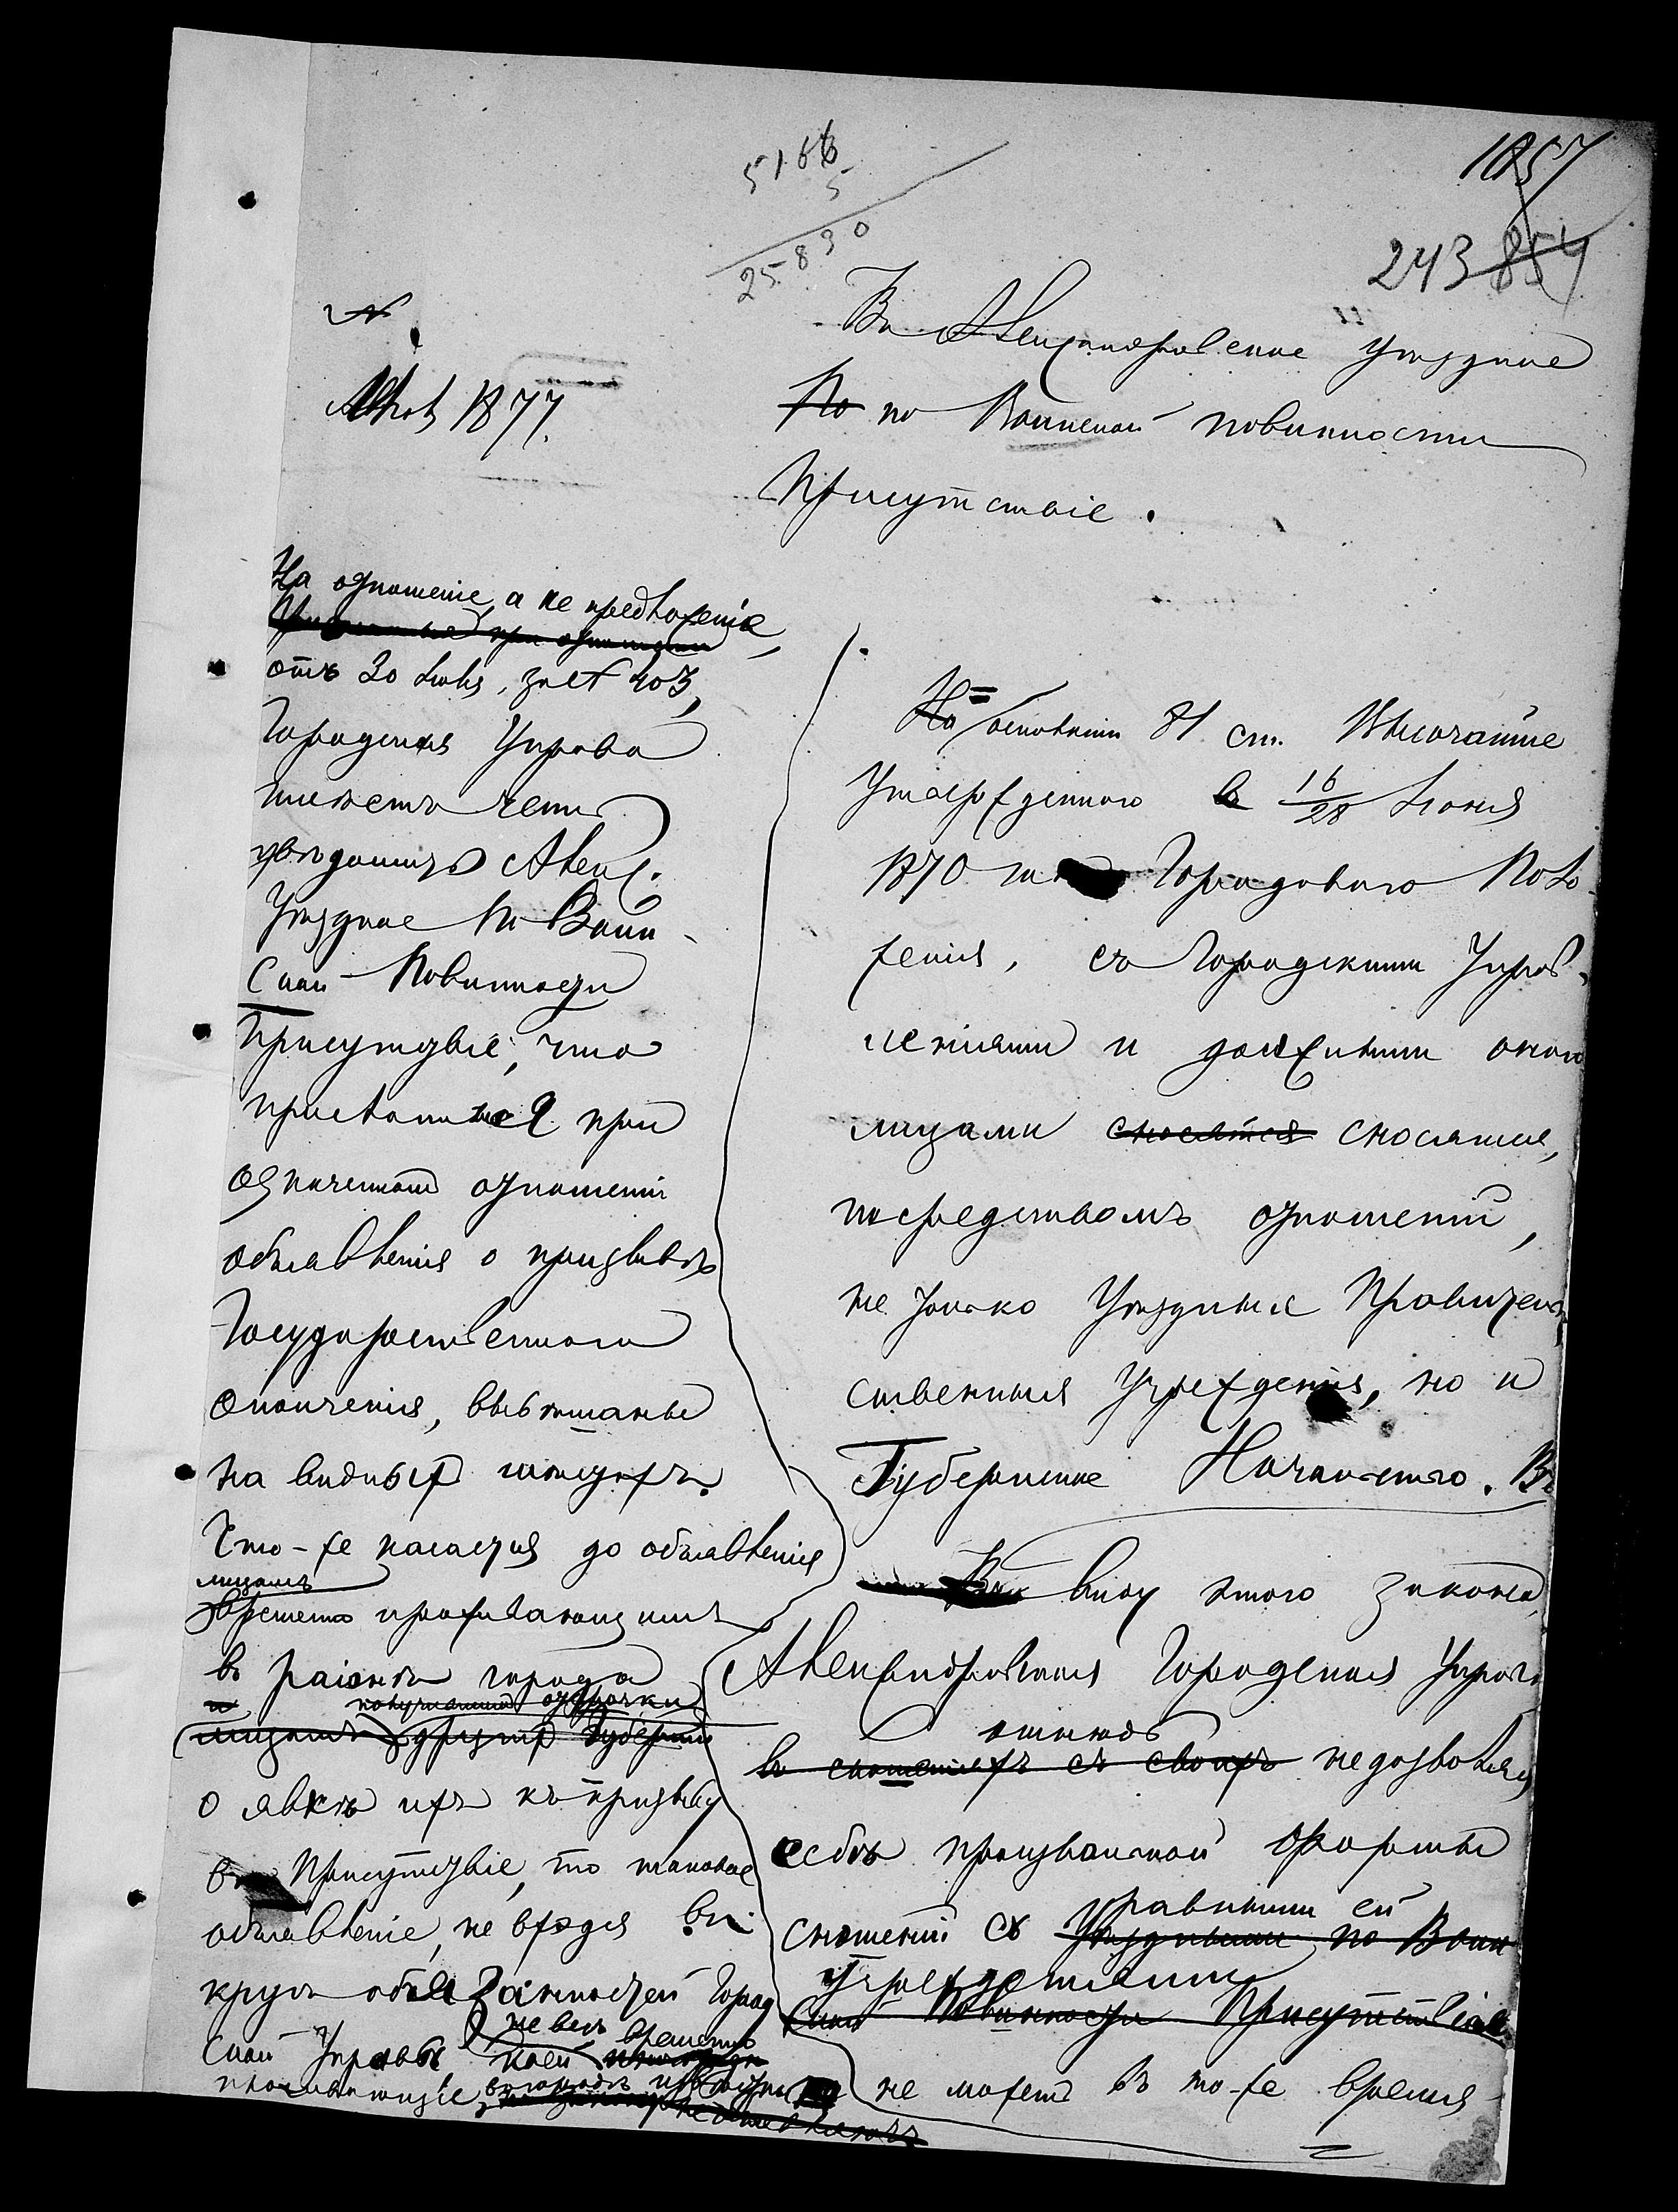 5166
5
25830
1857
243 854
№
Іюль 1877.
Въ Александровское Уѣздное
По по Воинской повинности
Присутствіе.
На отношеніе, а не предложеніе,
отъ 30 Іюля, за № 403,
Городская Управа
имѣетъ честь
увѣдомить Алекс.
Уѣздное По Воин-
ской Повинности
Присутствіе, что
при
означенномъ отношеніи
объявленія о призывѣ
Государственнаго
Ополченія, вывѣшаны
на видныхъ мѣстахъ.
Что-же касается до объявленія
лицамъ
временно проживающимъ
въ раіонѣ города
и получившимъ отсрочки
лицамъ другихъ Губерній
о явкѣ ихъ къ призыву
въ Присутствіе, то таковое
объявленіе, не входя въ
кругъ обязанностей Город
ской Управы, коей не всѣ временно
проживающіе въ городѣ извѣстны
На основаніи 81 ст. Высочайше
Утвержденного въ 16/28 Іюня
1870 года Городоваго Поло
женія, съ Городскими Управ-
леніями и должностными оного
лицами сносятся сносятся,
посредствомъ отношеній,
не только Уѣздныя Правитель
ственныя Учрежденія, но и
Губернское Начальство. Въ
Въ виду этого закона,
Александровская Городская Управа
отнюдь
въ сношеніяхъ съ своихъ не дозволяя
себѣ произвольной формы
сношеній съ равными ей
Уѣздными по Воин
учрежденіями
ской Повинности Присутствіе
не можетъ въ то-же время